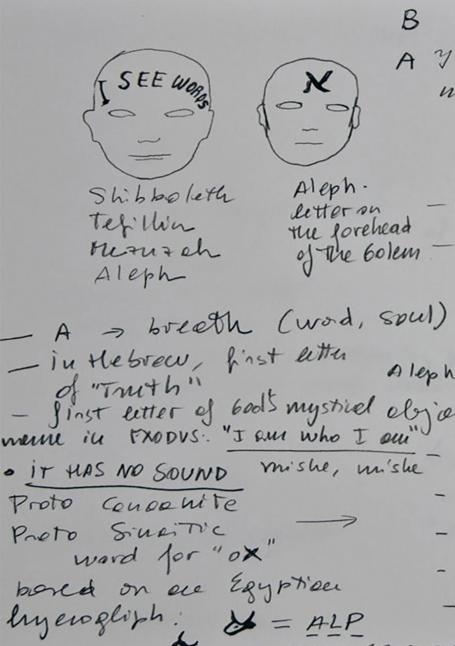 B
A
I SEE WORDS
א
Shibboleth
Tefillin
Mezuzah
Aleph
Aleph.
letter on
the forehead
of the Golem
— A → breath (word, soul)
— in Hebrew, first letter
of "Truth"
Aleph
- first letter of God's mystical
name in EXODUS: "I am who I am"
• IT HAS NO SOUND mishe, mishe
Proto Canaanite
Proto Sinaitic →
word for "ox"
based on an Egyptian
hyerogliph: = ALP